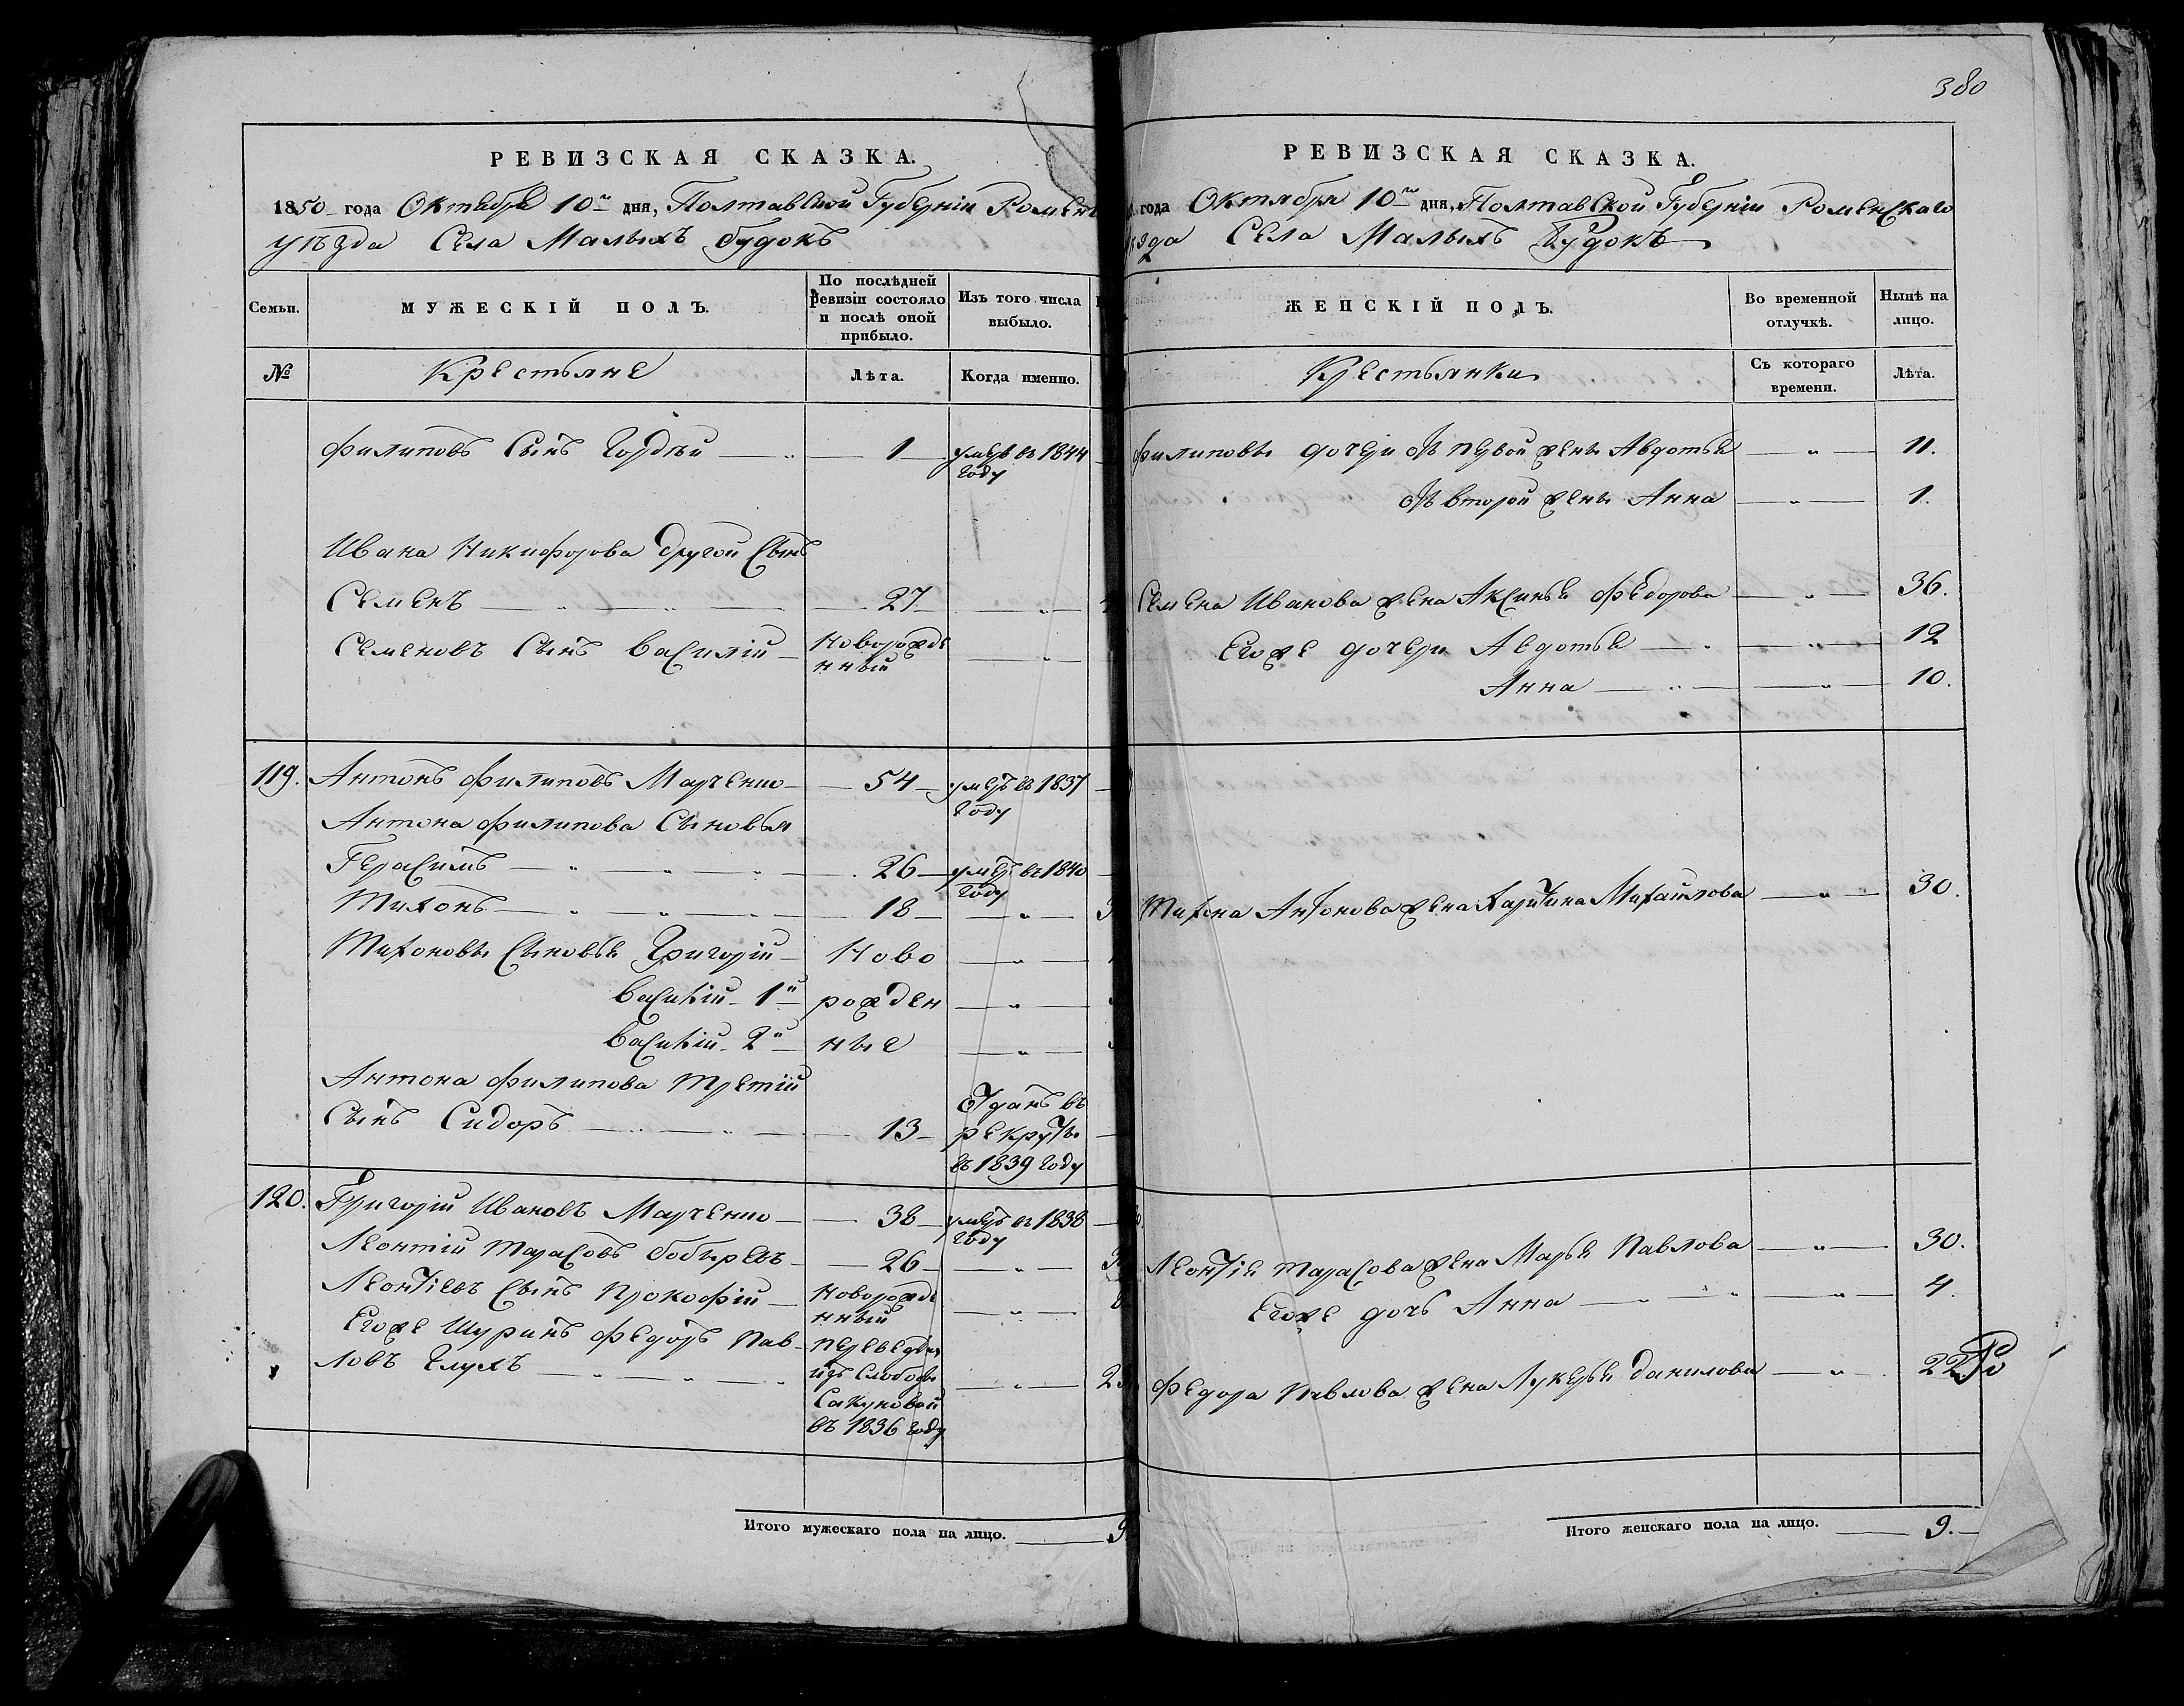 РЕВИЗСКАЯ СКАЗКА.
1850 года Октября 10го дня, Полтавской Губерніи Роменс
уѣзда Села Малыхъ будокъ
Семьи.
МУЖЕСКІЙ ПОЛЪ.
По послѣдней Ревизіи состояло и послѣ оной прибыло.
Изъ того числа выбыло.
№
Крестьяне
Лѣта.
Когда именно.
Филиповъ Сынъ Гордѣй — 1 — умеръ въ 1844
году
Ивана Никифорова другой Сынъ
Семенъ — 27 —
Семеновъ Сынъ Василій — Новорожде
нный
119. Антонъ Филиповъ Марченко — 54 — умеръ въ 1837
году
Антона Филипова Сыновья
Герасимъ — 26 — умеръ въ 1840
году
Тихонъ — 18 —
Тихоновы Сыновья Григорій — Ново
Василій 1й рожден
Василій 2й ные
Антона Филипова третій
Сынъ Сидоръ — 13 — Отданъ въ
рекруты
въ 1839 году
120. Григорій Ивановъ Марченко — 38 — умеръ въ 1838
году
Леонтій Тарасовъ бобыревъ — 26 —
Леонтіевъ Сынъ Прокофій — Новорожде
нный
Егоже Шуринъ Федоръ Пав-
ловъ Глухъ
переведен
изъ Слободы
Сакуновой
въ 1836 году
Итого мужескаго пола на лицо. 9
380
РЕВИЗСКАЯ СКАЗКА.
года Октября 10го дня, Полтавской Губерніи Роменскаго
ѣзда Села Малыхъ Будокъ
ЖЕНСКІЙ ПОЛЪ.
Во временной отлучкѣ.
Нынѣ на лицо.
Крестьянки
Съ котораго времени.
Лѣта.
Филиповы дочери отъ первой жены Авдотья — 11.
отъ второй жены Анна — 1.
Семена Иванова жена Аксинья Федорова — 36.
Егоже дочери Авдотья — 12
Анна — 10.
Тихона Антонова жена Харитина Михайлова — 30.
Леонтія Тарасова жена Марья Павлова — 30.
Егоже дочь Анна — 4.
Федора Павлова жена Лукерья данилова — 22.
Итого женскаго пола на лицо. — 9. —